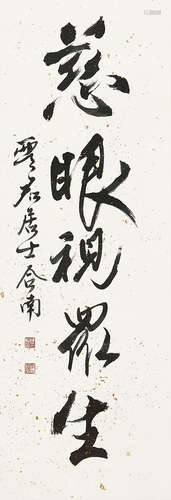 慈眼視眾生
雲石居士合南